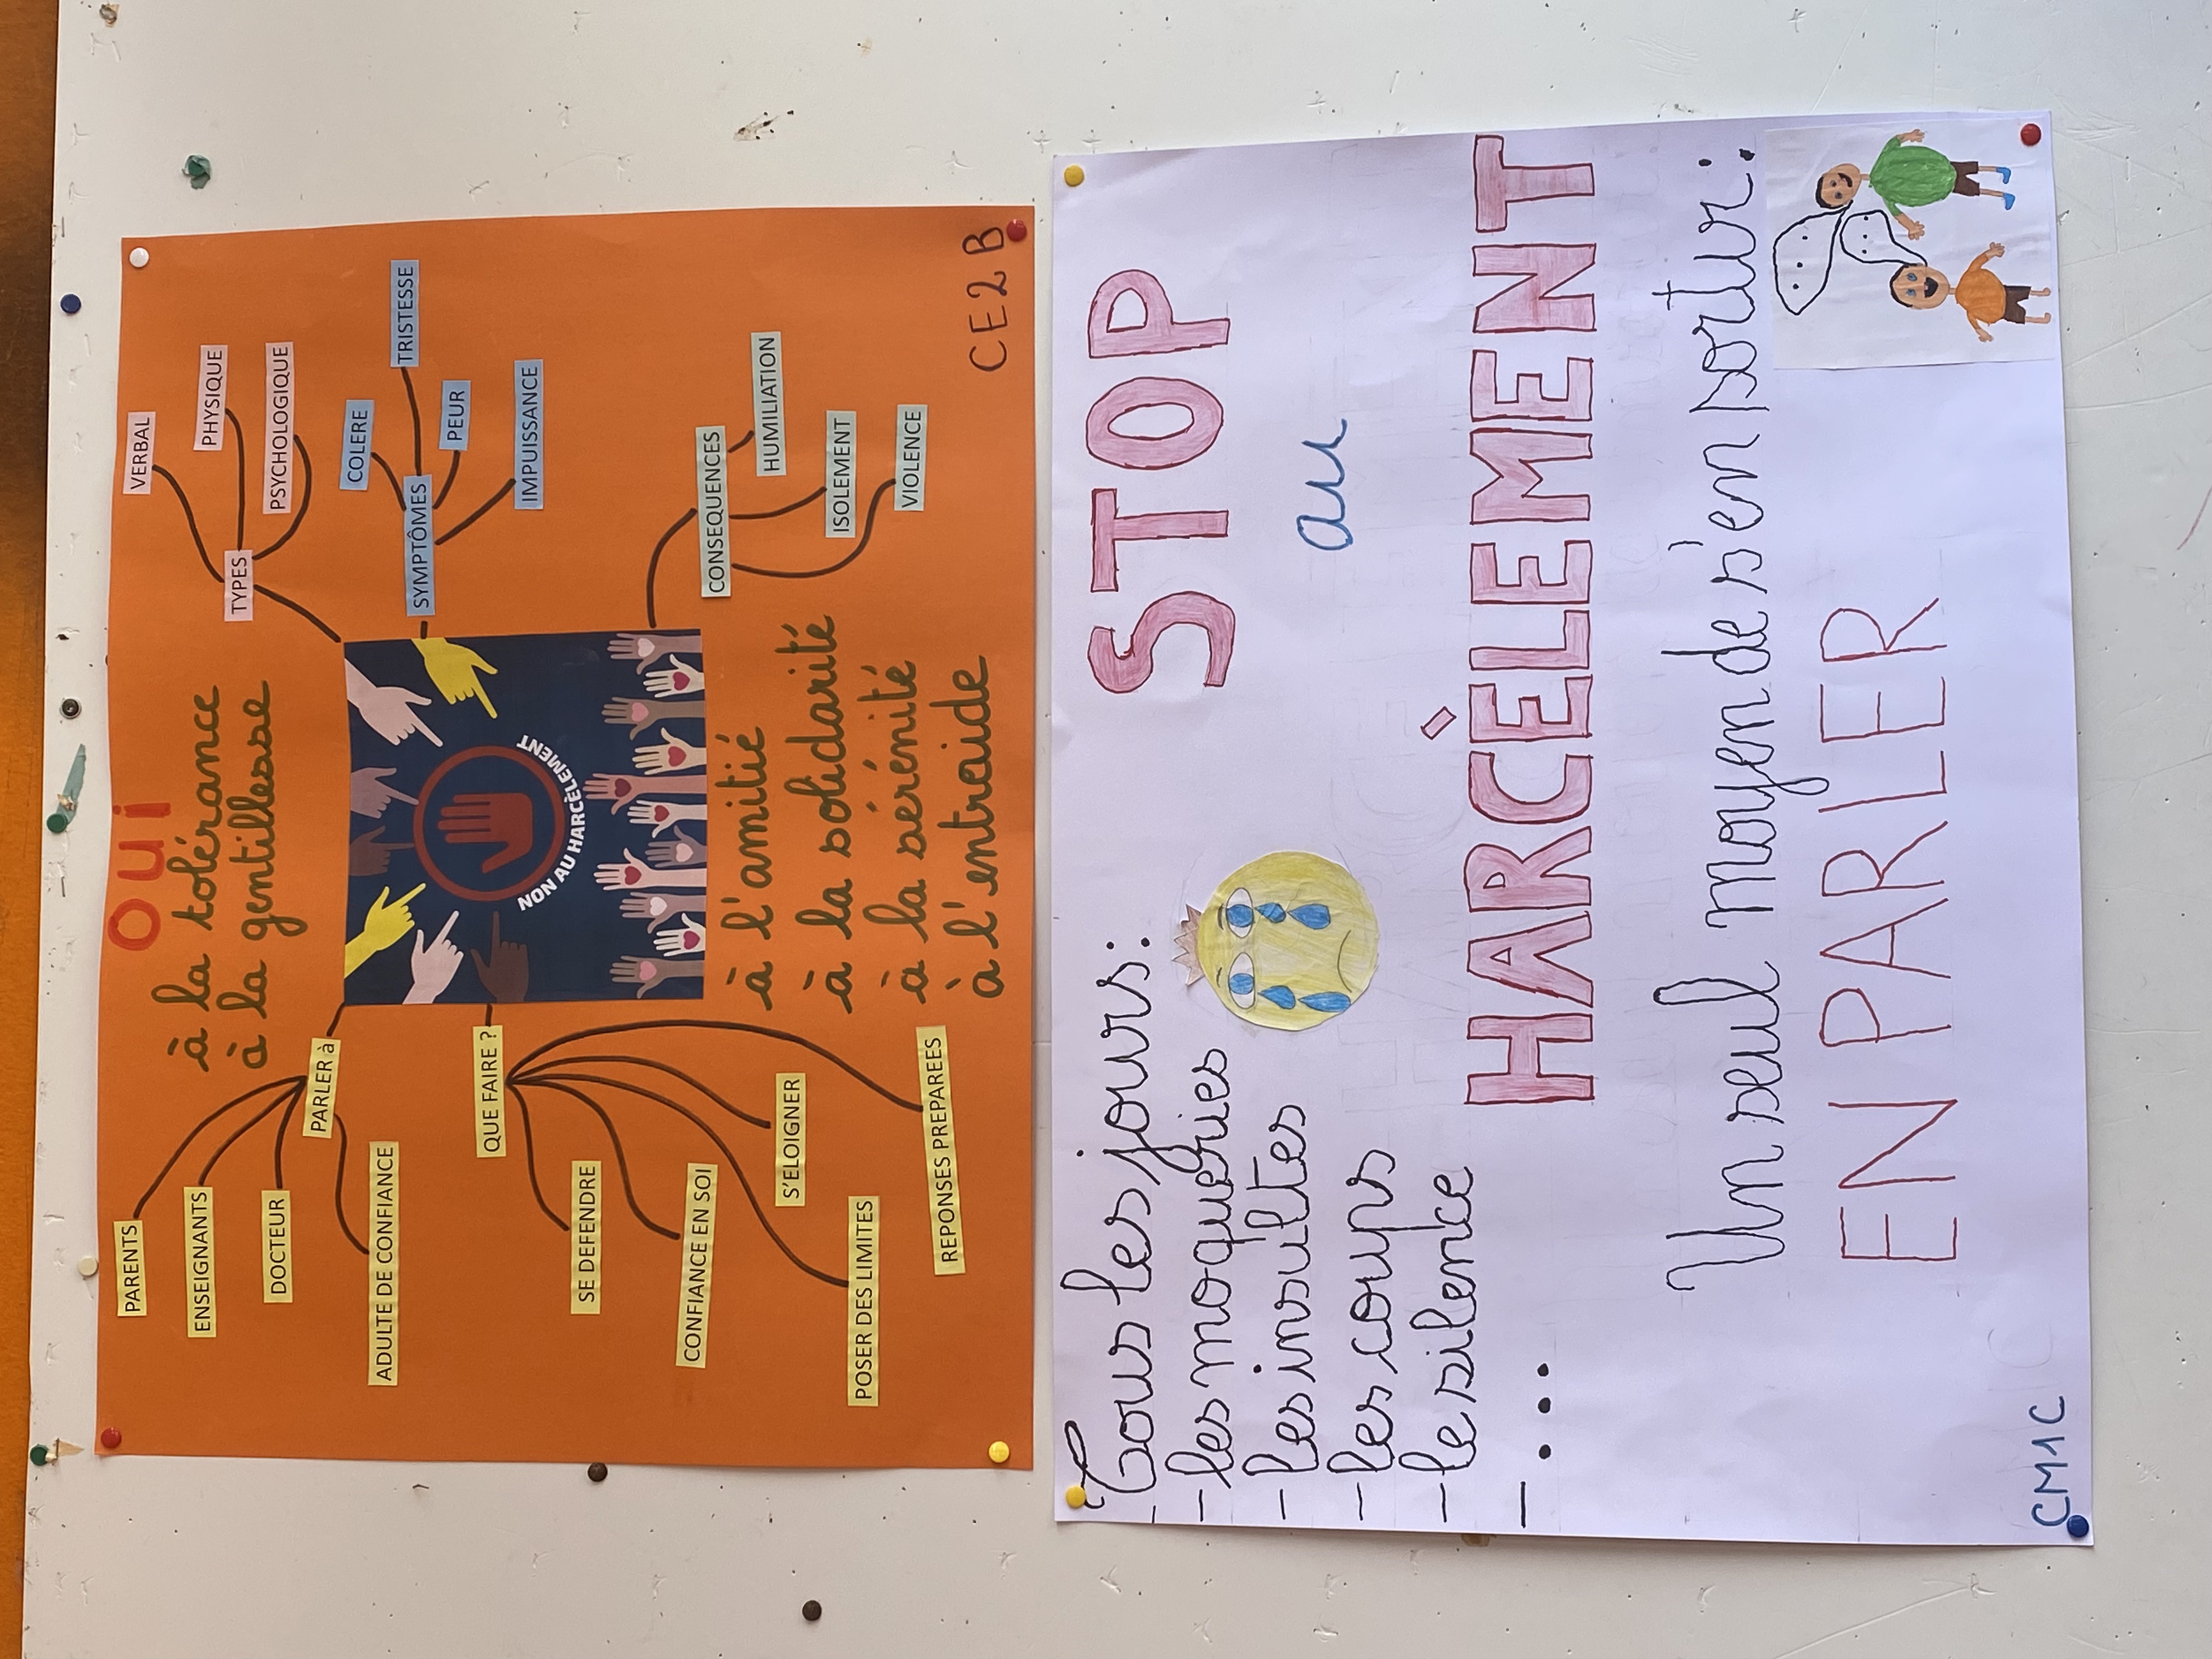 OUI
à la tolérance
à la gentillesse
PARLER à
PARENTS
ENSEIGNANTS
DOCTEUR
ADULTE DE CONFIANCE
QUE FAIRE ?
SE DEFENDRE
CONFIANCE EN SOI
S'ELOIGNER
POSER DES LIMITES
REPONSES PREPARES
NON AU HARCÈLEMENT
TYPES
VERBAL
PHYSIQUE
PSYCHOLOGIQUE
SYMPTÔMES
COLERE
TRISTESSE
PEUR
IMPUISSANCE
CONSEQUENCES
HUMILIATION
ISOLEMENT
VIOLENCE
à l'amitié
à la solidarité
à la sérénité
à l'entraide
CE2B
Tous les jours :
- les moqueries
- les insultes
- les coups
- le silence
- ...
STOP
au
HARCÈLEMENT
Un seul moyen de s'en sortir :
EN PARLER
CM1C